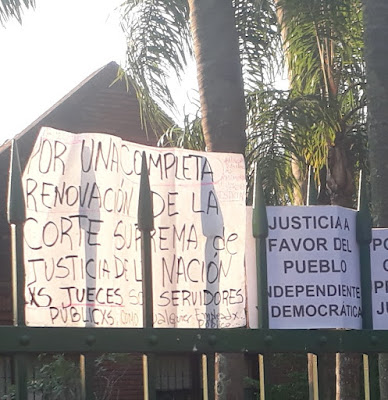 POR UNA COMPLETA
RENOVACIÓN DE LA
CORTE SUPREMA de
JUSTICIA DE LA NACIÓN
LXS JUECES SON SERVIDORES
PUBLICXS COMO CUALQUIER
JUSTICIA A
FAVOR DEL
PUEBLO
INDEPENDIENTE
DEMOCRÁTICA